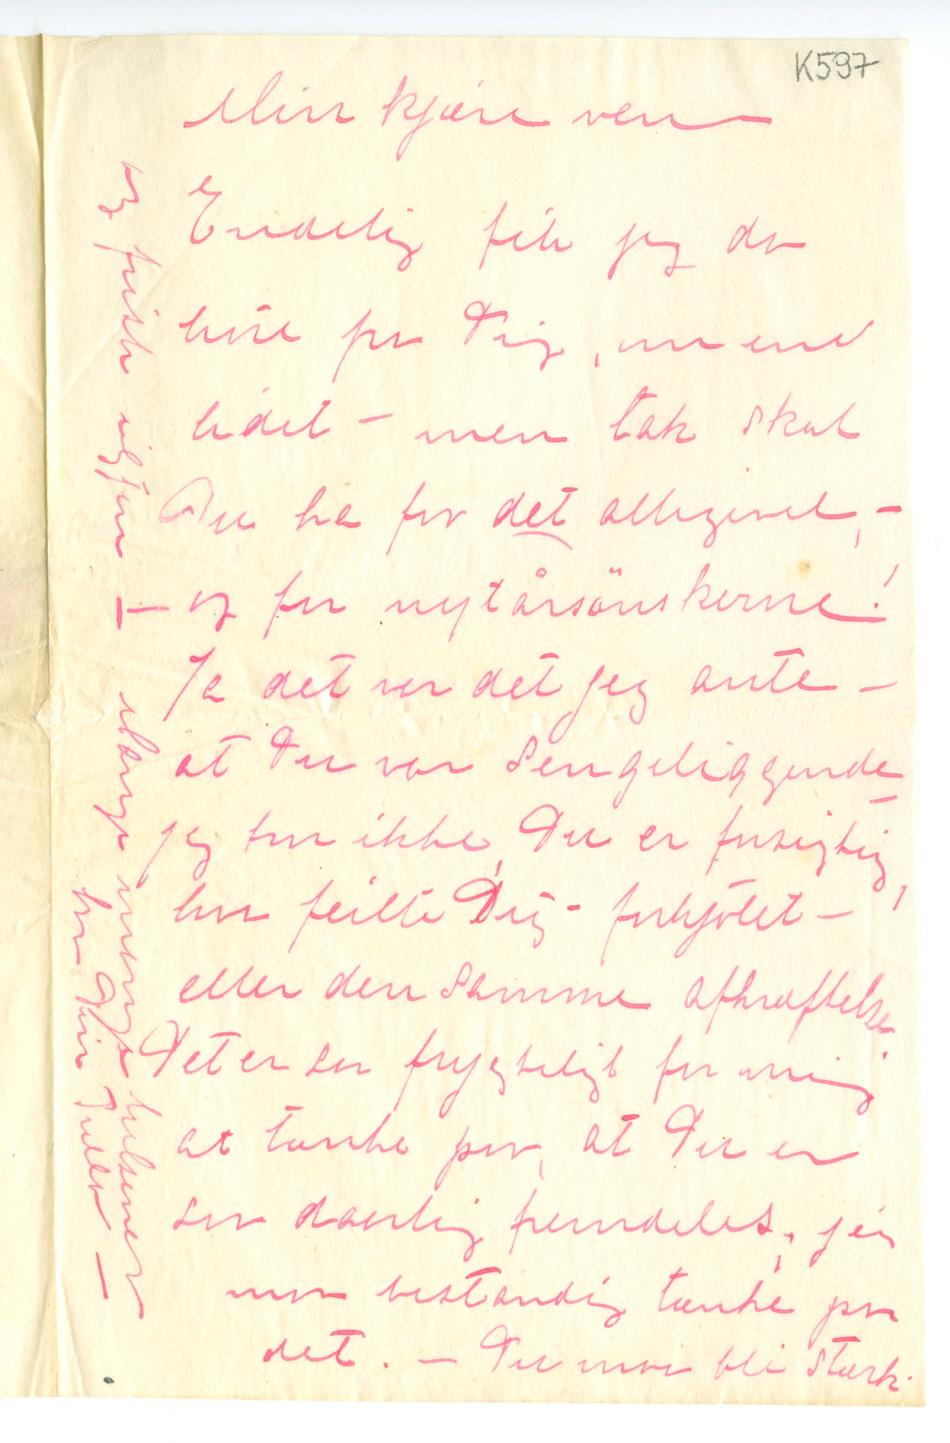 K597
Min kjære ven
Endelig fik jeg da
høre fra Dig, om end
lidet – men tak skal
Du ha for det alligevel, –
og for nytårsönskerne!
Ja det var det jeg ante –
at Du var Sengeliggende –
jeg tror ikke, Du er forsigtig,
hva feilte Dig – forkjølet –
eller den Samme afkræftelse.
Det er saa frygteligt for mig
at tænke paa, at Du er
saa daarlig fremdeles, jeg
maa bestandig tænke paa
det. – Du maa bli stærk
og frisk igjen –
Mange mange hilsener
fra Din Tulla –